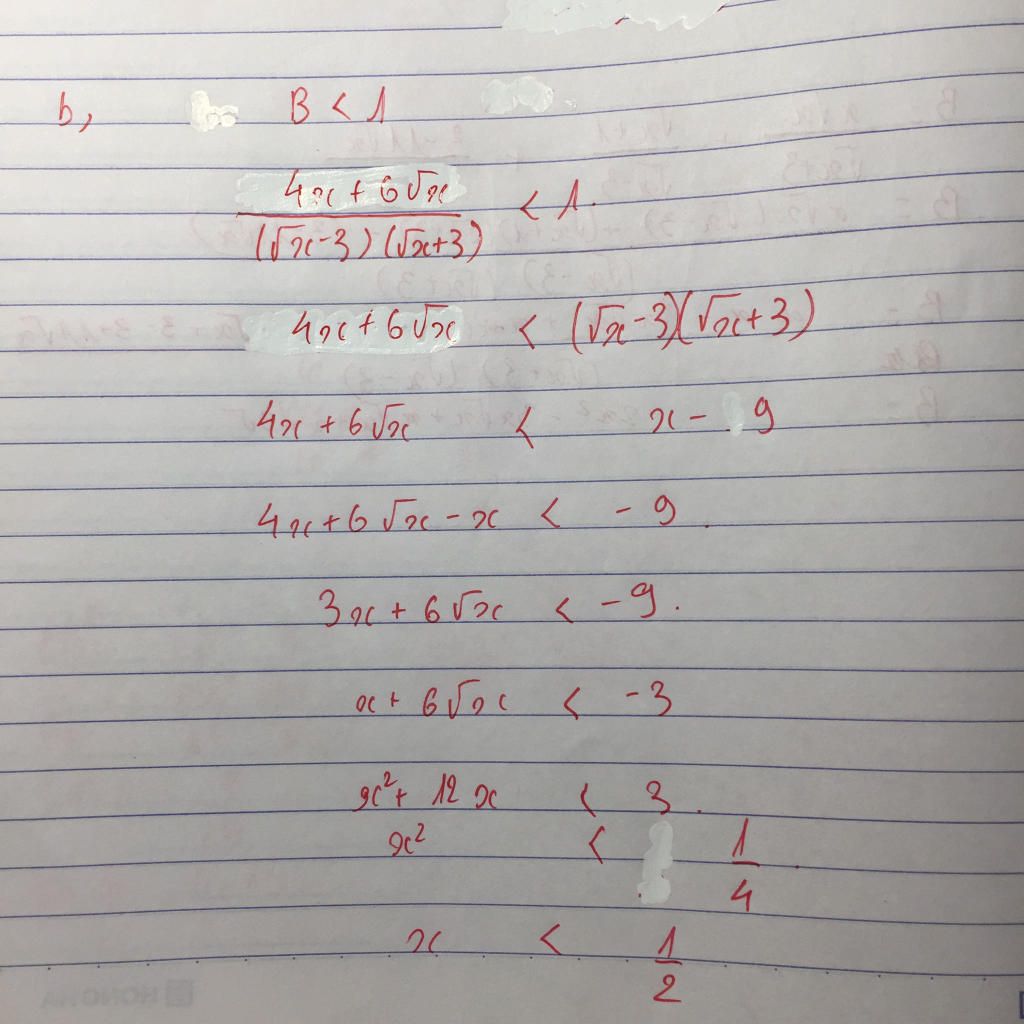 b, B < 1
4x + 6√x / (√x - 3) (√x + 3) < 1.
4x + 6√x < (√x - 3)(√x + 3)
4x + 6√x < x - 9
4x + 6√x - x < -9
3x + 6√x < -9.
x + 6√x < -3
x² + 12x < 3
x² < 1/4
x < 1/2